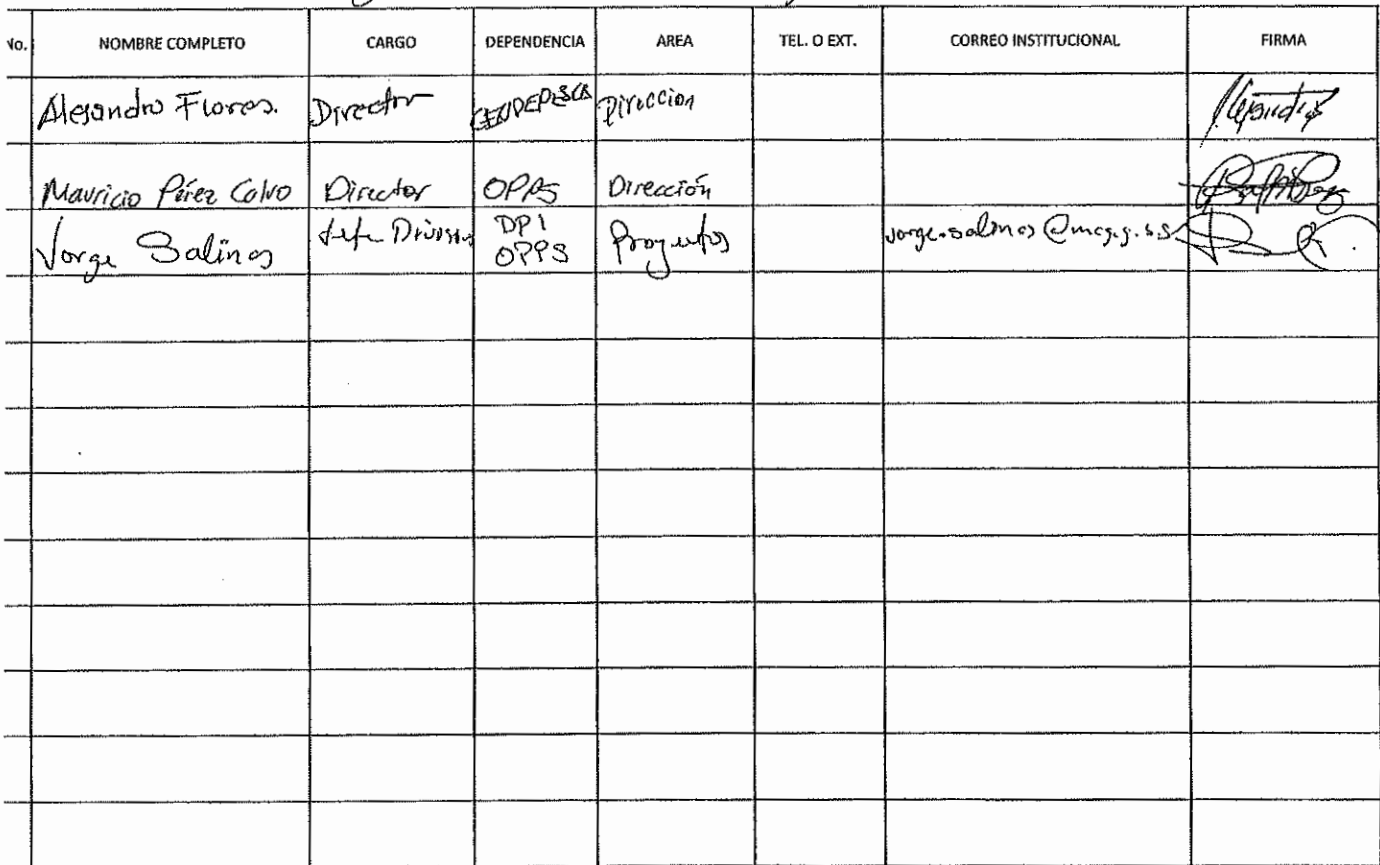 No. NOMBRE COMPLETO CARGO DEPENDENCIA AREA TEL. O EXT. CORREO INSTITUCIONAL FIRMA
Alejandro Flores. Director CENDEPESCA Direccion
Mauricio Pérez Calvo Director OPPS Dirección
Jorge Salinas Jefe División DPI OPPS Proyectos